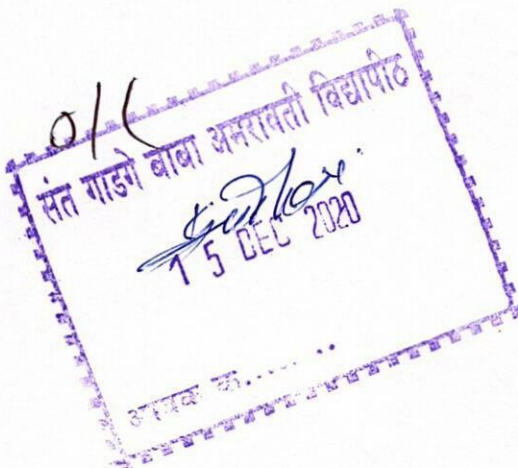 O/C
संत गाडगे बाबा अमरावती विद्यापीठ
15 DEC 2020
आवक क्र.......